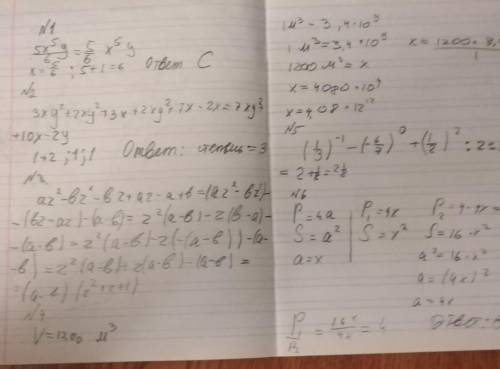 N1
5x⁵y/6 = 5/6 x⁵ y
x = 5/6 ; 5+1=6 Ответ C
N2
3xy²+2xy²+3x+2xy²+7x-2x=7xy²
+10x-2y
1+2 ; 1; 1 Ответ: степень = 3
az²-bz²-bz+az-a+b=(az²-bz²)-
-(bz-az)-(a-b)=z²(a-b)-z(b-a)-
-(a-b)=z²(a-b)-z(-(a-b))-(a-
-b)=z²(a-b)=z(a-b)-(a-b)=
N4
V=1200 м³
1м³ - 3,4·10⁹
1м³=3,4·10⁹
1200м³=x
x=4080·10⁹
x=4,08·10¹²
N5
(1/3)⁻¹-(-6/7)⁰+(1/2)²:2=
=2+1/8=2 1/8
N6
P=4a
S=a²
a=x
P₁=4x
S=x²
P₂=4·4x=
S=16·x²
a²=16·x²
a=(4x)²
a=4x
P₁/P₂ = 16x/4x = 4